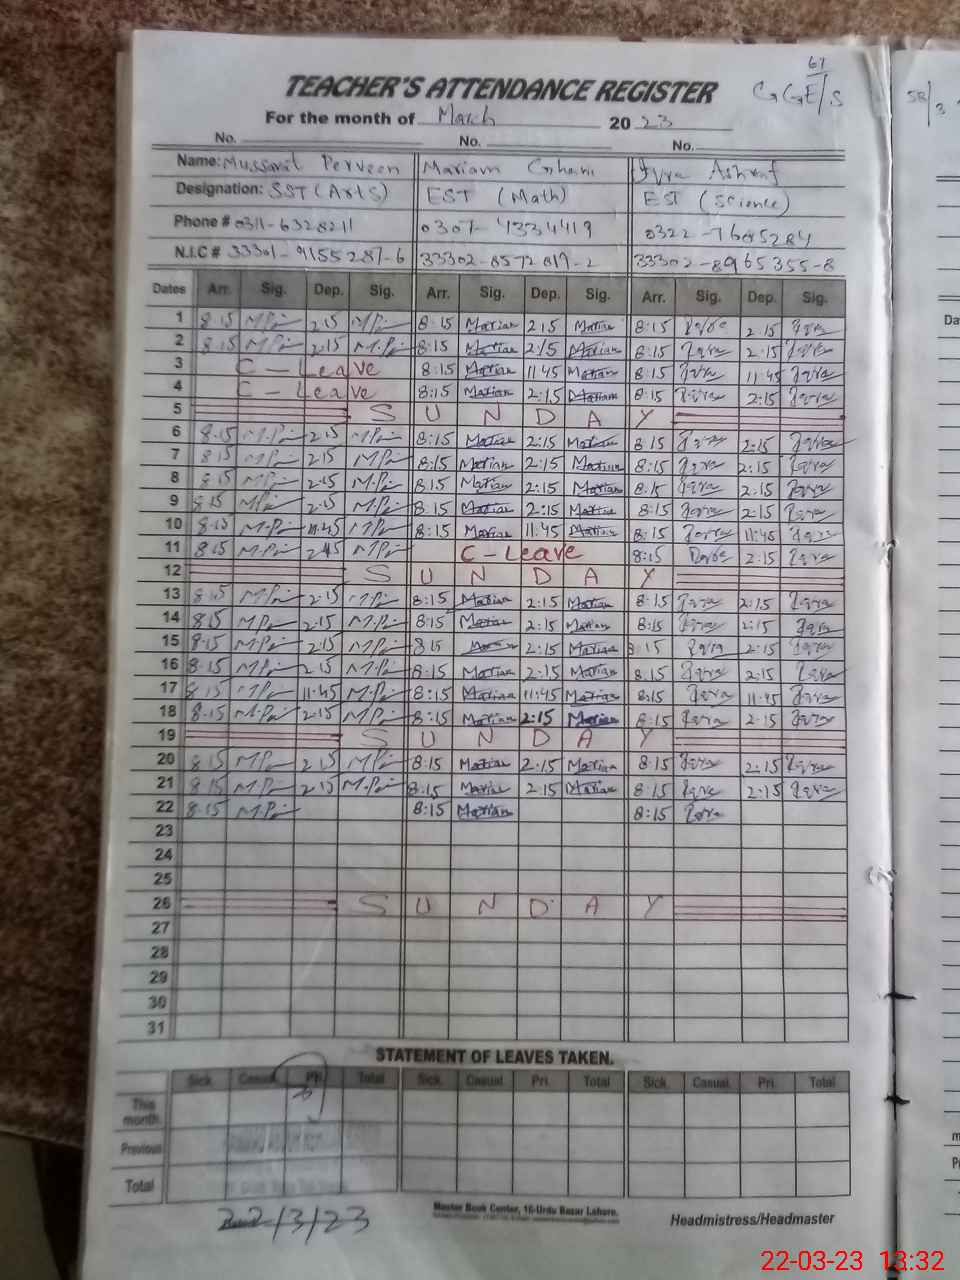 67
GGE/S
58/3
TEACHER'S ATTENDANCE REGISTER
For the month of March 2023
No. No. No.
Name: Mussarat Perveen Mariam Ghani Iqra Ashraf
Designation: SST (Arts) EST (Math) EST (Science)
Phone # 0311-6328211 0307-4334419 0322-7685284
N.I.C # 33301-9155287-6 33302-8572819-2 33302-8965355-8
Dates Arr. Sig. Dep. Sig. Arr. Sig. Dep. Sig. Arr. Sig. Dep. Sig.
1 8:15 2:15 8:15 Mariam 2:15 Mariam 8:15 Iqra 2:15 Iqra
2 8:15 2:15 8:15 Mariam 2:15 Mariam 8:15 Iqra 2:15 Iqra
3 C - Leave 8:15 Mariam 11:45 Mariam 8:15 Iqra 11:45 Iqra
4 C - Leave 8:15 Mariam 2:15 Mariam 8:15 Iqra 2:15 Iqra
5 S U N D A Y
6 8:15 2:15 8:15 Mariam 2:15 Mariam 8:15 Iqra 2:15 Iqra
7 8:15 2:15 8:15 Mariam 2:15 Mariam 8:15 Iqra 2:15 Iqra
8 8:15 2:15 8:15 Mariam 2:15 Mariam 8:15 Iqra 2:15 Iqra
9 8:15 2:15 8:15 Mariam 2:15 Mariam 8:15 Iqra 2:15 Iqra
10 8:15 11:45 8:15 Mariam 11:45 Mariam 8:15 Iqra 11:45 Iqra
11 8:15 C - Leave 8:15 Iqra 2:15 Iqra
12 S U N D A Y
13 8:15 2:15 8:15 Mariam 2:15 Mariam 8:15 Iqra 2:15 Iqra
14 8:15 2:15 8:15 Mariam 2:15 Mariam 8:15 Iqra 2:15 Iqra
15 8:15 2:15 8:15 Mariam 2:15 Mariam 8:15 Iqra 2:15 Iqra
16 8:15 2:15 8:15 Mariam 2:15 Mariam 8:15 Iqra 2:15 Iqra
17 8:15 11:45 8:15 Mariam 11:45 Mariam 8:15 Iqra 11:45 Iqra
18 8:15 2:15 8:15 Mariam 2:15 Mariam 8:15 Iqra 2:15 Iqra
19 S U N D A Y
20 8:15 2:15 8:15 Mariam 2:15 Mariam 8:15 Iqra 2:15 Iqra
21 8:15 2:15 8:15 Mariam 2:15 Mariam 8:15 Iqra 2:15 Iqra
22 8:15 8:15 Mariam 8:15 Iqra
23
24
25
26 S U N D A Y
27
28
29
30
31
STATEMENT OF LEAVES TAKEN.
Sick. Casual. Pri. Total Sick. Casual. Pri. Total Sick. Casual. Pri. Total
This month.
Previous
Total
22/3/23
Master Book Center, 16-Urdu Bazar Lahore.
Headmistress/Headmaster
22-03-23 13:32